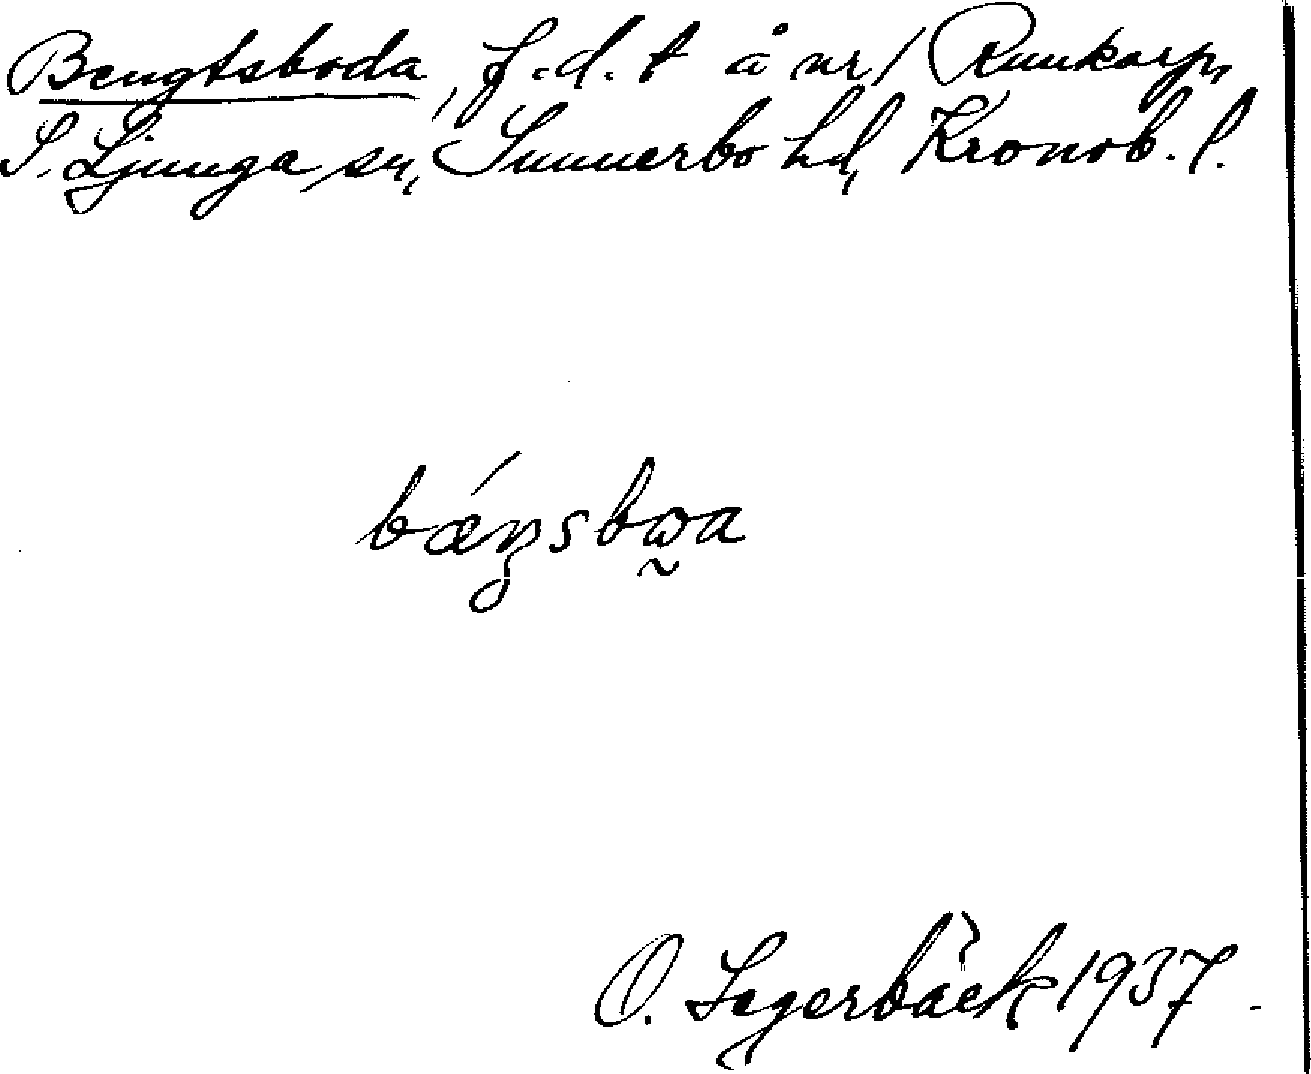 Bengtsboda, f.d. t å nr 1 Runkarp,
S. Ljunga sn, Sunnerbo hd, Kronob. l.
bǽŋsbωa
O. Lagerbäck 1937.